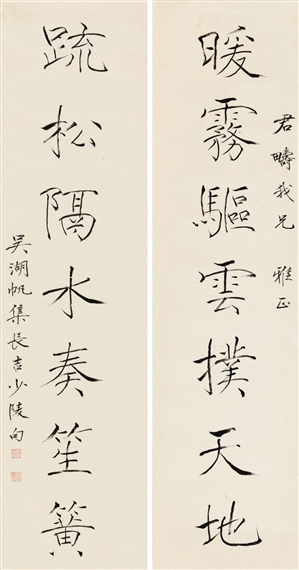 君疇我兄 雅正
暖霧驅雲撲天地
疏松隔水奏笙簧
吳湖帆集長吉少陵句